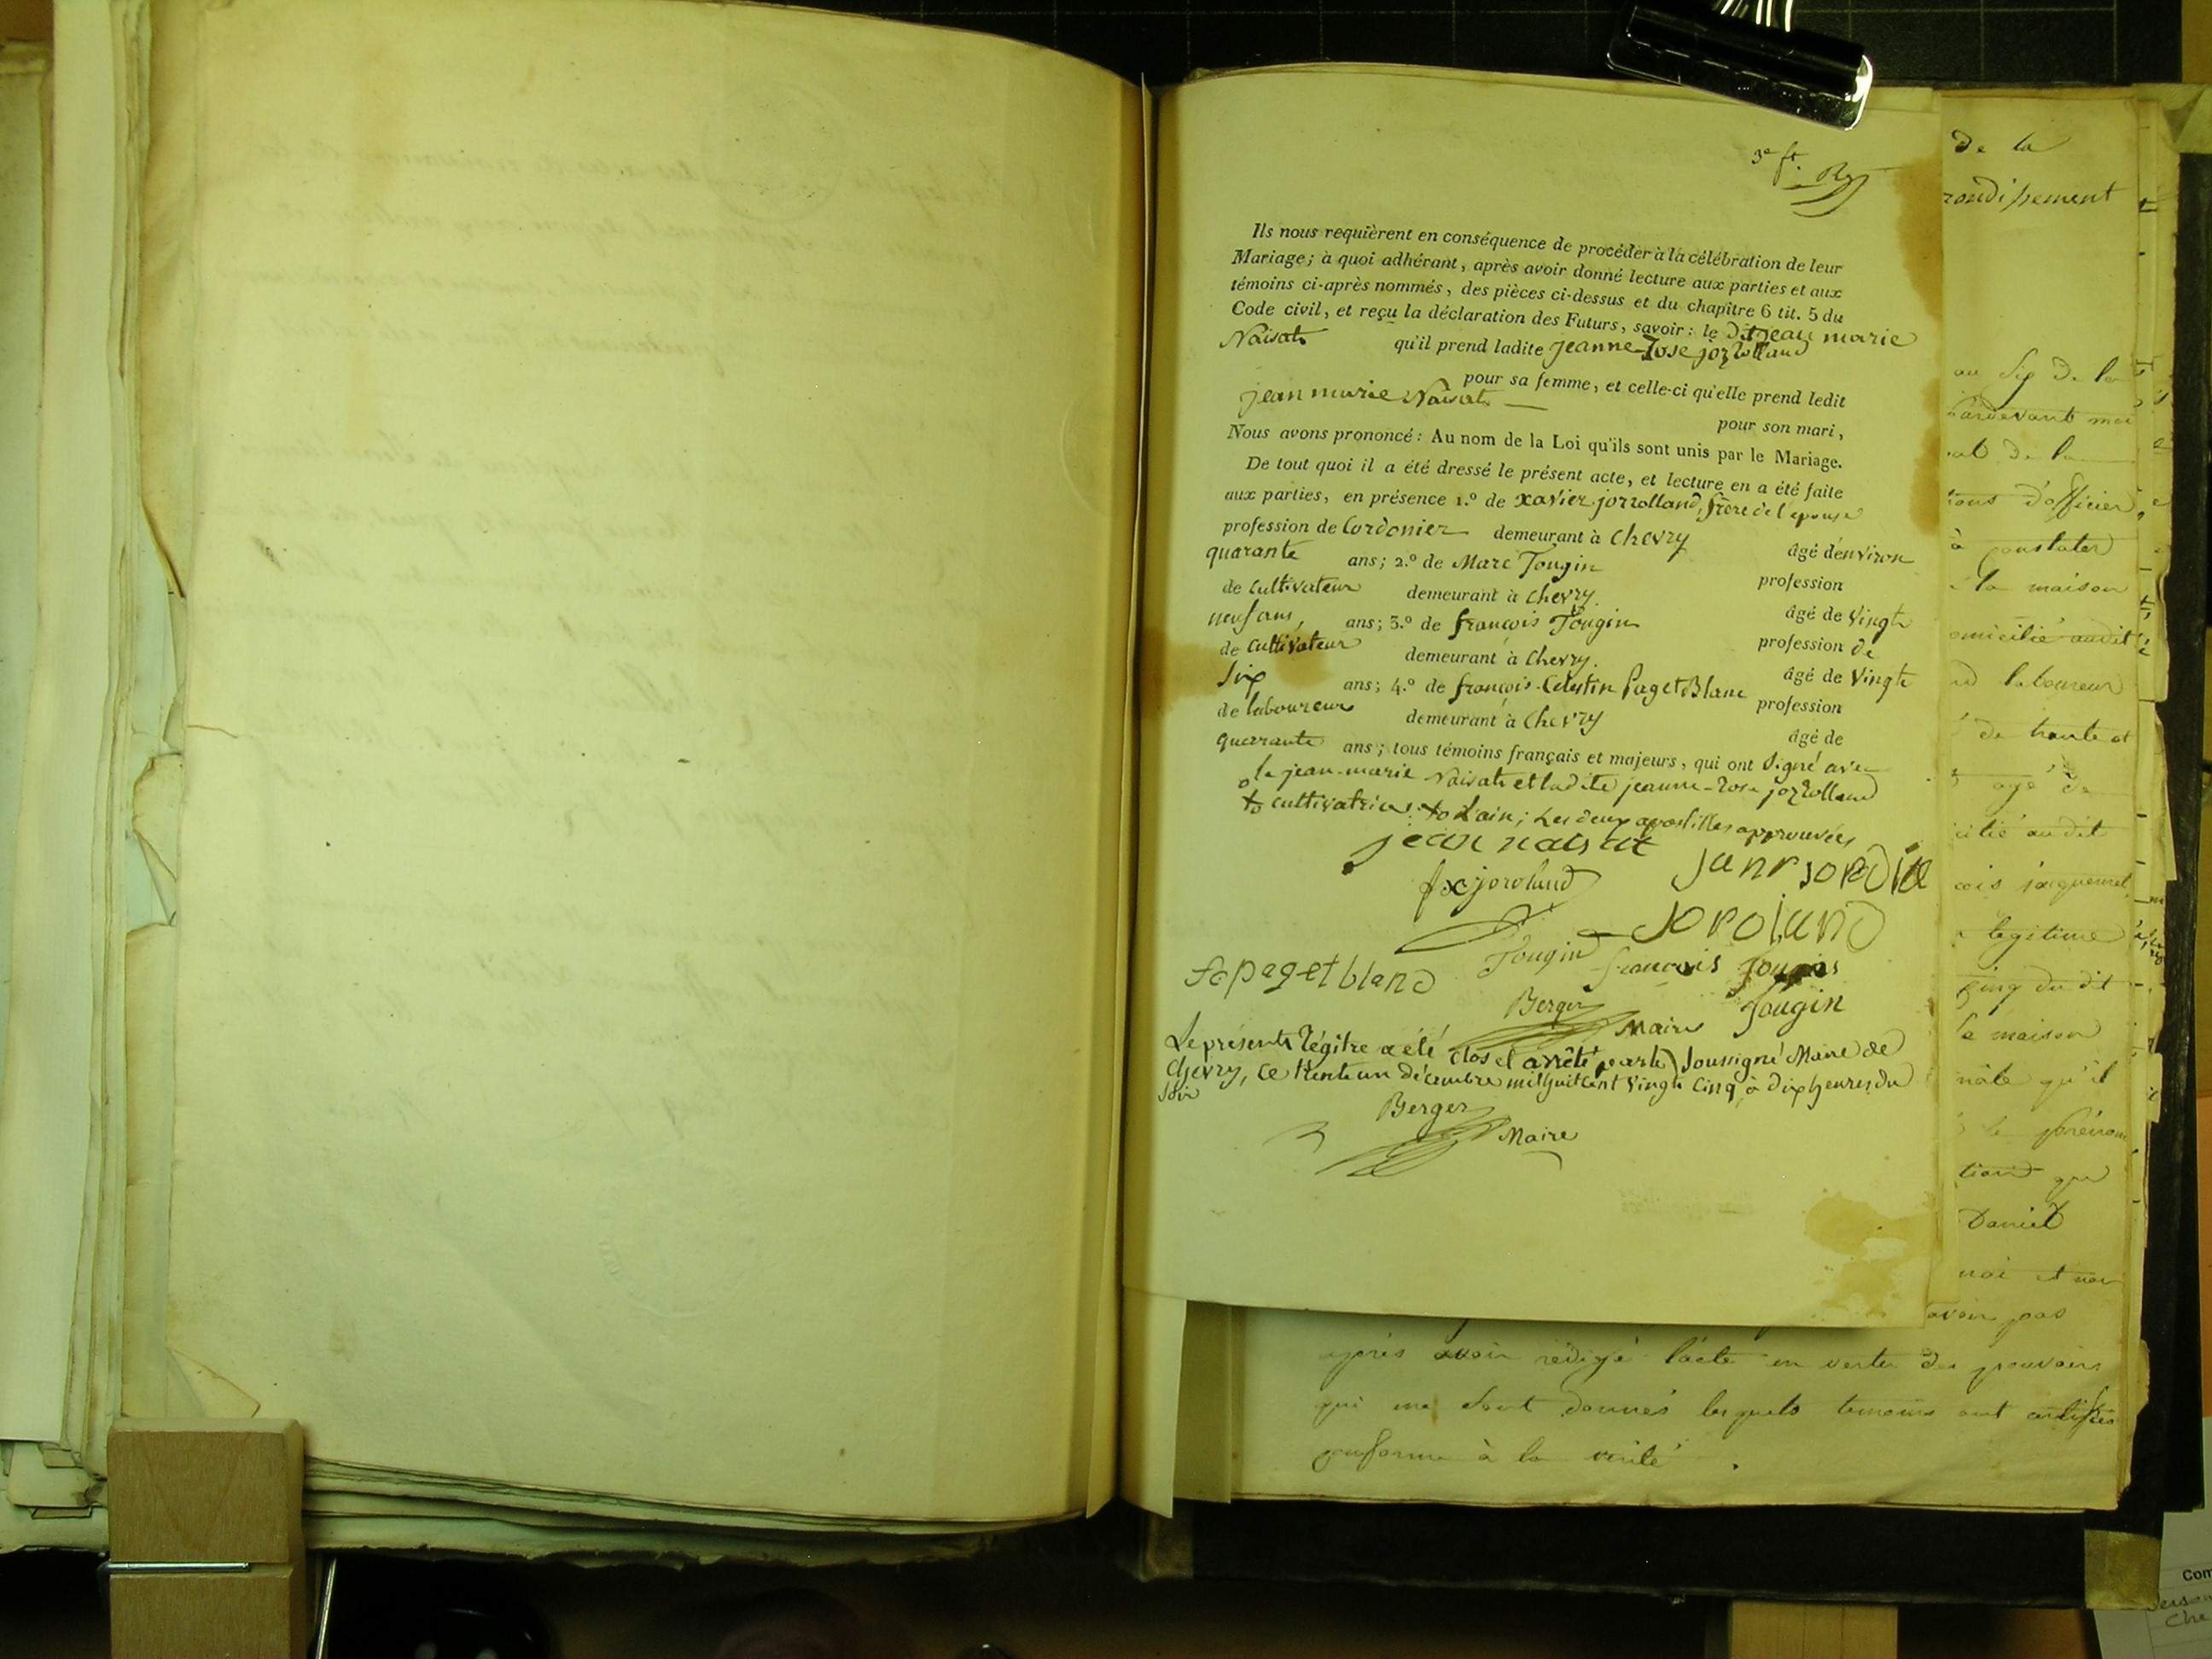 3e ft.
Ils nous requièrent en conséquence de procéder à la célébration de leur
Mariage; à quoi adhérant, après avoir donné lecture aux parties et aux
témoins ci-après nommés, des pièces ci-dessus et du chapitre 6 tit. 5 du
Code civil, et reçu la déclaration des Futurs, savoir: le dit jean marie
Naisat qu'il prend ladite jeanne-Rose jozrolland
pour sa femme, et celle-ci qu'elle prend ledit
jean marie Naisat pour son mari,
Nous avons prononcé: Au nom de la Loi qu'ils sont unis par le Mariage.
De tout quoi il a été dressé le présent acte, et lecture en a été faite
aux parties, en présence 1.º de xavier jozrolland, frère de l'epouse
profession de Cordonier demeurant à Chevry
âgé d'environ
quarante ans; 2.º de Marc Tougin
profession
de cultivateur demeurant à Chevry.
âgé de vingt
neuf ans, ans; 3.º de françois Tougin
profession de
de cultivateur demeurant à Chevry.
âgé de vingt
six ans; 4.º de françois-Celestin Paget Blanc
profession
de laboureur demeurant à Chevry
âgé de
quarante ans; tous témoins français et majeurs, qui ont signé avec
le jean-marie Naisat et ladite jeanne-Rose jozrolland
cultivatrice. Lain; Les deux apostilles approuvées
jean naisat
fx jorolland
joroland
Tougin françois Tougin
fc paget blanc
Berger Maire Tougin
Le présent régitre a été clos et arrêté par le Soussigné Maire de
Chevry, ce trente un décembre mil huit cent vingt cinq, à dix heures du
soir
Berger
Maire
de la
rondissement
au six de la
pardevant moi
de la
ions d'officier
à constater
la maison
omicilié audit
laboureur
de trente et
agé de
icilié au dit
cois jacquemet
legitime
du dit
le maison
mâle qu'il
le prénom
tion que
Daniel
moi et non
avoir pas
après avoir rédigé l'acte en vertu des pouvoirs
qui me sont donnés lesquels temoins ont certifiés
conforme à la vérité.
Com